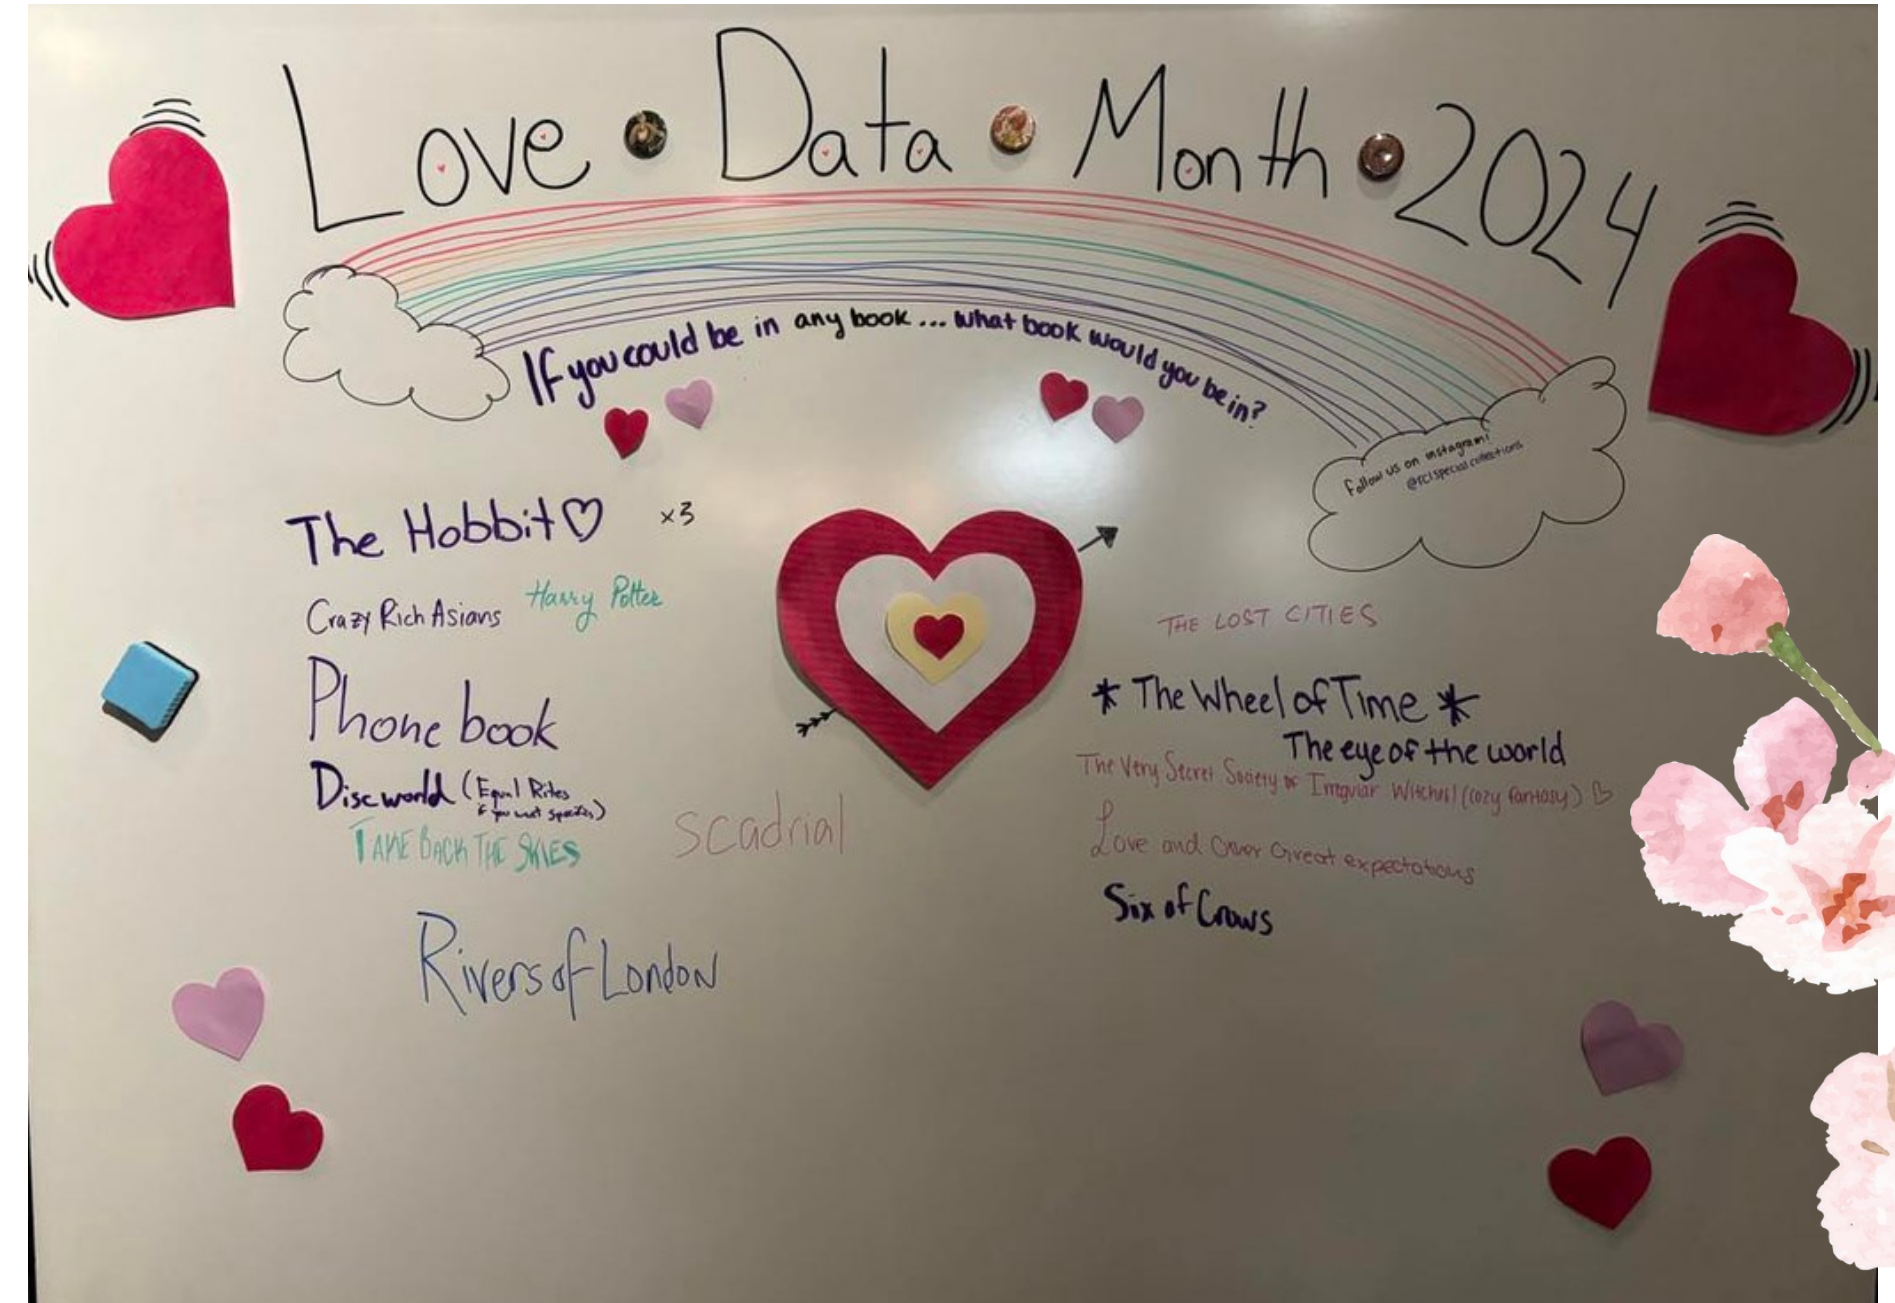 Love • Data • Month • 2024
If you could be in any book... What book would you be in?
Follow us on instagram!
@rclspecialcollections
The Hobbit♡ x3
Crazy Rich Asians
Harry Potter
Phone book
Discworld (Equal Rites
if you want specifics)
TAKE BACK THE SKIES
scadrial
Rivers of London
THE LOST CITIES
* The Wheel of Time *
The eye of the world
The Very Secret Society of Irregular Witches! (cozy fantasy) ♡
Love and Other Great expectations
Six of Crows